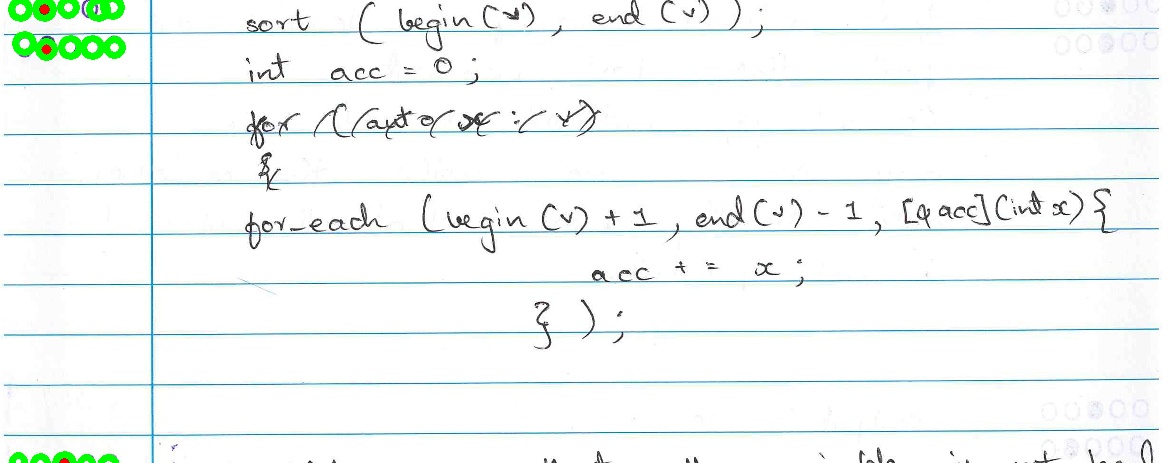 sort (begin(v), end(v));
int acc = 0;
for (auto x : v)
{
for_each (begin(v) + 1, end(v) - 1, [&acc](int x){
acc += x;
});